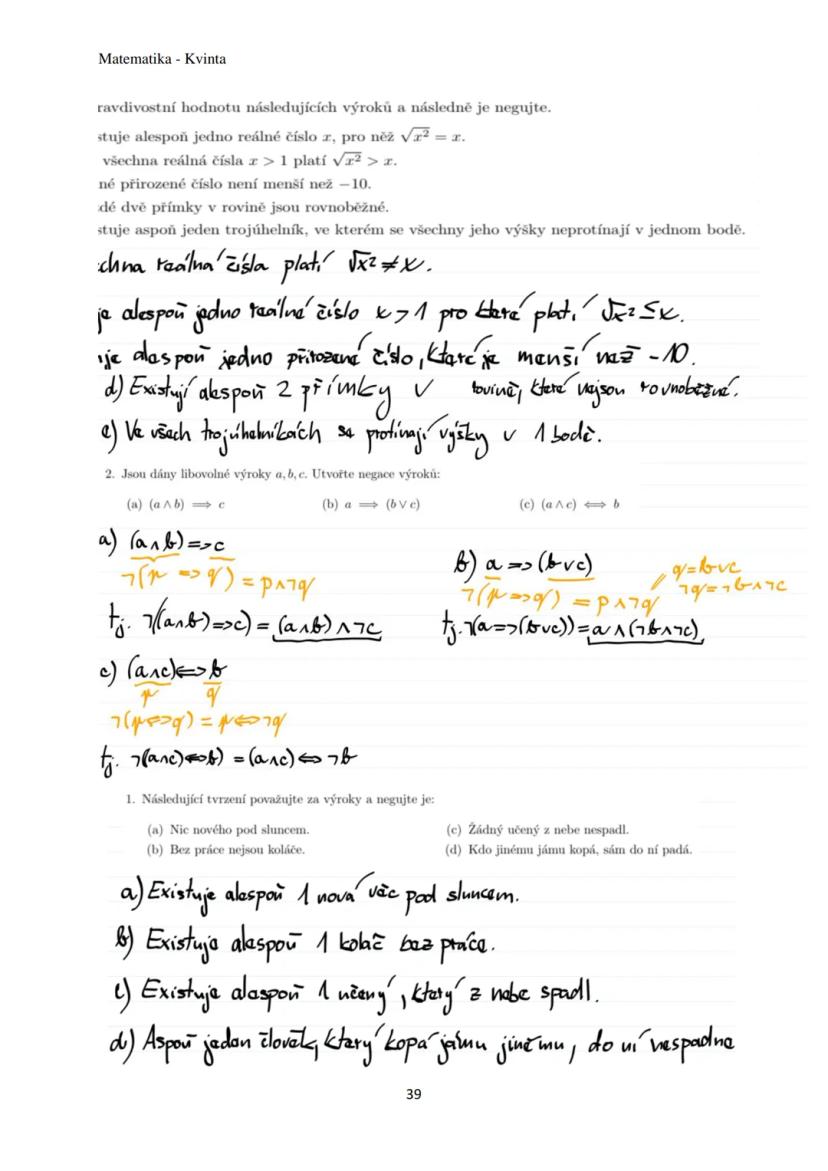 Matematika - Kvinta
ravdivostní hodnotu následujících výroků a následně je negujte.
stuje alespoň jedno reálné číslo x, pro něž √x² = x.
všechna reálná čísla x > 1 platí √x² > x.
né přirozené číslo není menší než −10.
dé dvě přímky v rovině jsou rovnoběžné.
stuje aspoň jeden trojúhelník, ve kterém se všechny jeho výšky neprotínají v jednom bodě.
chna reálná čísla platí √x² ≠ x.
je alespoň jedno reálné číslo x > 1 pro které platí √x² ≤ x.
je alespoň jedno přirozené číslo, které je menší než -10.
d) Existují alespoň 2 přímky v rovině, které nejsou rovnoběžné.
e) Ve všech trojúhelnících se protínají výšky v 1 bodě.
2. Jsou dány libovolné výroky a, b, c. Utvořte negace výroků:
(a) (a ∧ b) ⟹ c (b) a ⟹ (b ∨ c) (c) (a ∧ c) ⟺ b
a) (a∧b)=>c
¬(p => q) = p∧¬q
tj. ¬((a∧b)=>c) = (a∧b)∧¬c
b) a => (b∨c)
q=b∨c
¬q=¬b∧¬c
¬(p=>q) = p∧¬q
tj. ¬(a=>(b∨c))=a∧(¬b∧¬c)
c) (a∧c)<=>b
p q
¬(p<=>q) = p<=>¬q
tj. ¬(a∧c)<=>b) = (a∧c)<=>¬b
1. Následující tvrzení považujte za výroky a negujte je:
(a) Nic nového pod sluncem. (c) Žádný učený z nebe nespadl.
(b) Bez práce nejsou koláče. (d) Kdo jinému jámu kopá, sám do ní padá.
a) Existuje alespoň 1 nová věc pod sluncem.
b) Existuje alespoň 1 koláč bez práce.
c) Existuje alespoň 1 učený, který z nebe spadl.
d) Aspoň jeden člověk, který kopá jámu jinému, do ní nespadne
39